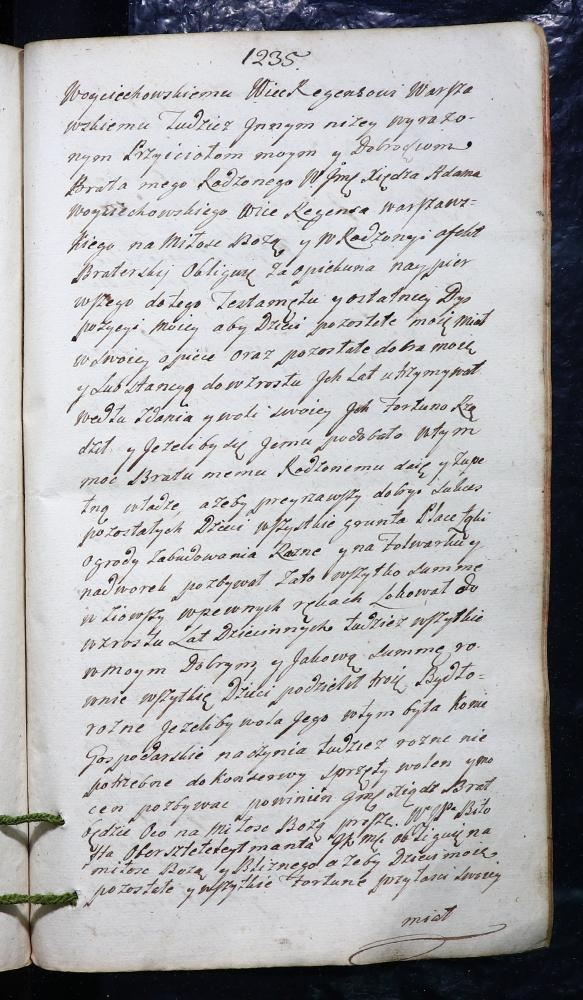 1235.
Woyciechowskiemu Wice Regensowi Warsza
wskiemu Tudziez Jnnym nizey wyrazo-
nym Przyiciołom moym y Dobrodziom
Brata mego Rodzonego W Jmę Xiędza Adama
Woyciechowskiego Wice Regensa Warszaws-
kiego na Miłosc Bozą y w Rodzonyi afekt
Braterskij Obliguię za opiekuna naypier
wszego do tego Testamętu y ostatniey Dys
pozycyi moiey aby Dzieci pozostałe moie miał
w swoiey opiece oraz pozostałe dobra moie
y Substancyą do wzrostu Jch Lat utrzymywał
według zdania y woli swoiey Jch Fortuno Rzą
dził y Jezeliby się Jemu podobało w tym
moc Bratu memu Rodzonemu daię y zupe
łną władze, azeby przeyrzawszy dobrys
pozostałych Dzieci wszystkie grunta Place Łąki
Ogrody Zabudowania Rozne y na Folwarku y
nadworek pozbywał Zato wszytko Summę
wziowszy w pewnych rękach Lokował do
wzrostu Lat Dziecinnych tudziez wszytkie
w moym Dobrym y Jakową Summę ro-
wnie wszytkię Dzieci podzielił Bydło-
rozne Jezeliby wola Jego w tym była Konie
Gospodarskie naczynia tudziez rozne nie
potrzebne do konserwy sprzęty wolen y mo
cen pozbywac powinien Jmę Xiądz Brat
będzie Oco na Miłosc Bozą proszę. W JP.
Jk mę obliguię na
miłosc Bozą y Blizniego azeby Dzieci moie
pozostałe y wszytkie Fortune przytosci swoiey
miał